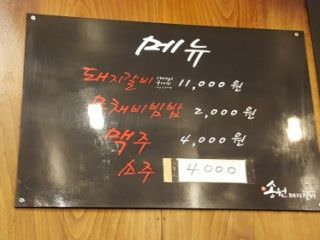 메뉴
돼지갈비 11,000원
야채비빔밥 2,000원
맥주 4,000원
소주 4000
송원 돼지갈비